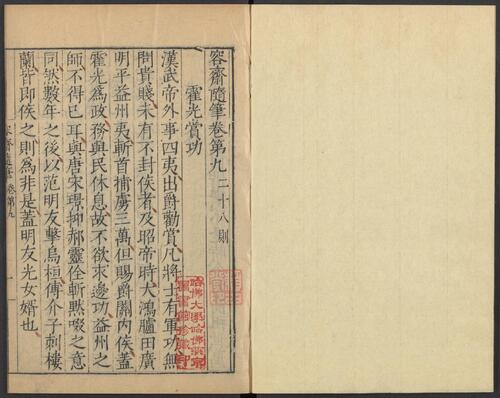 容齋隨筆卷第九 二十八則
霍光賞功
漢武帝外事四夷出爵勸賞凡將士有軍功無
問貴賤未有不封侯者及昭帝時大鴻臚田廣
明平益州夷斬首捕虜三萬但賜爵關內侯蓋
霍光為政務與民休息故不欲求邊功益州之
師不得已耳與唐宋璟抑郝靈佺斬默啜之意
同然數年之後以范明友擊烏桓傅介子刺樓
蘭皆即侯之則為非是蓋明友光女婿也
哈佛大學哈佛燕京
圖書館珍藏印